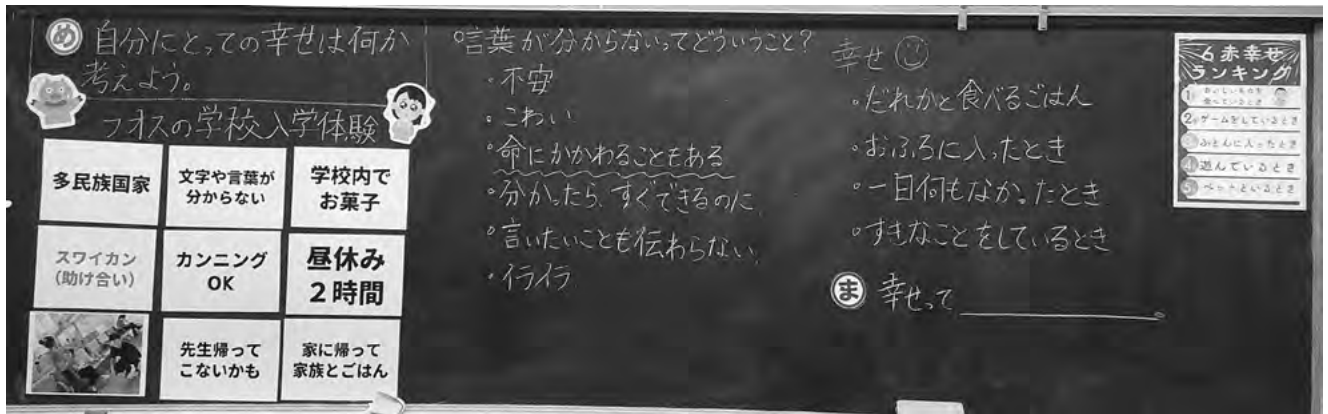 め 自分にとっての幸せは何か
考えよう。
ラオスの学校入学体験
多民族国家
文字や言葉が
分からない
学校内で
お菓子
スワイカン
(助け合い)
カンニング
OK
昼休み
2時間
先生帰って
こないかも
家に帰って
家族とごはん
言葉が分からないってどういうこと?
・不安
・こわい
・命にかかわることもある
・分かったら、すぐできるのに
・言いたいことも伝わらない。
・イライラ
幸せ
・だれかと食べるごはん
・おふろに入ったとき
・一日何もなかったとき
・すきなことをしているとき
ま 幸せって 。
6赤幸せ
ランキング
1 おいしいものを
食べているとき
2 ゲームをしているとき
3 ふとんに入ったとき
4 遊んでいるとき
5 ペットといるとき